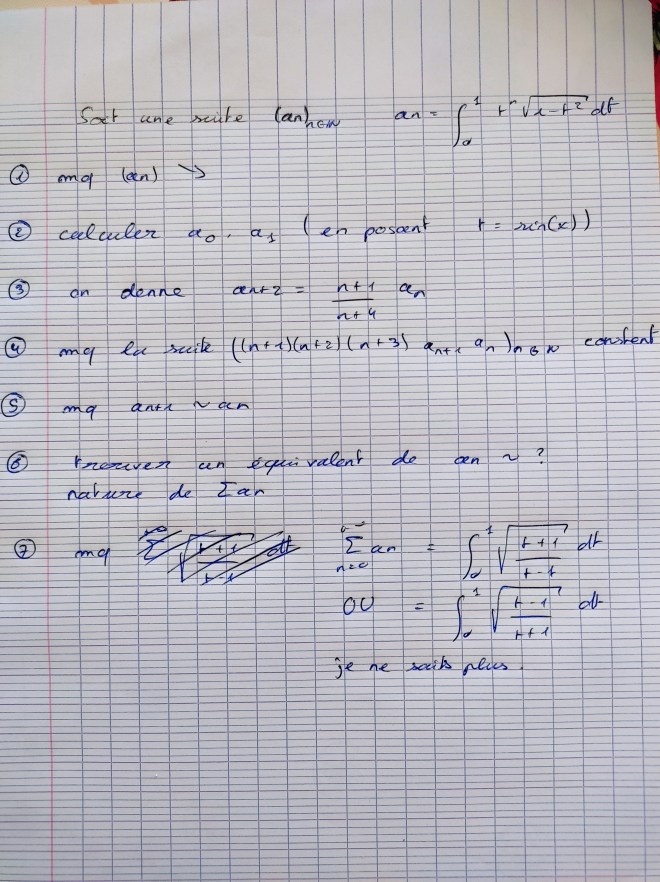 Soit une suite (an)n∈ℕ an = ∫₀¹ tⁿ √(1-t²) dt
① mq (an) ↘
② calculer a₀, a₁ (en posant t = sin(x))
③ on donne an+2 = (n+1)/(n+4) an
④ mq la suite ((n+1)(n+2)(n+3) an+1 an)n∈ℕ constent
⑤ mq an+1 ~ an
⑥ trouver un équivalent de an ~ ?
nature de Σan
⑦ mq Σ an = ∫₀¹ √((t+1)/(t-1)) dt
n=0
OU = ∫₀¹ √((t-1)/(t+1)) dt
je ne saits plus.